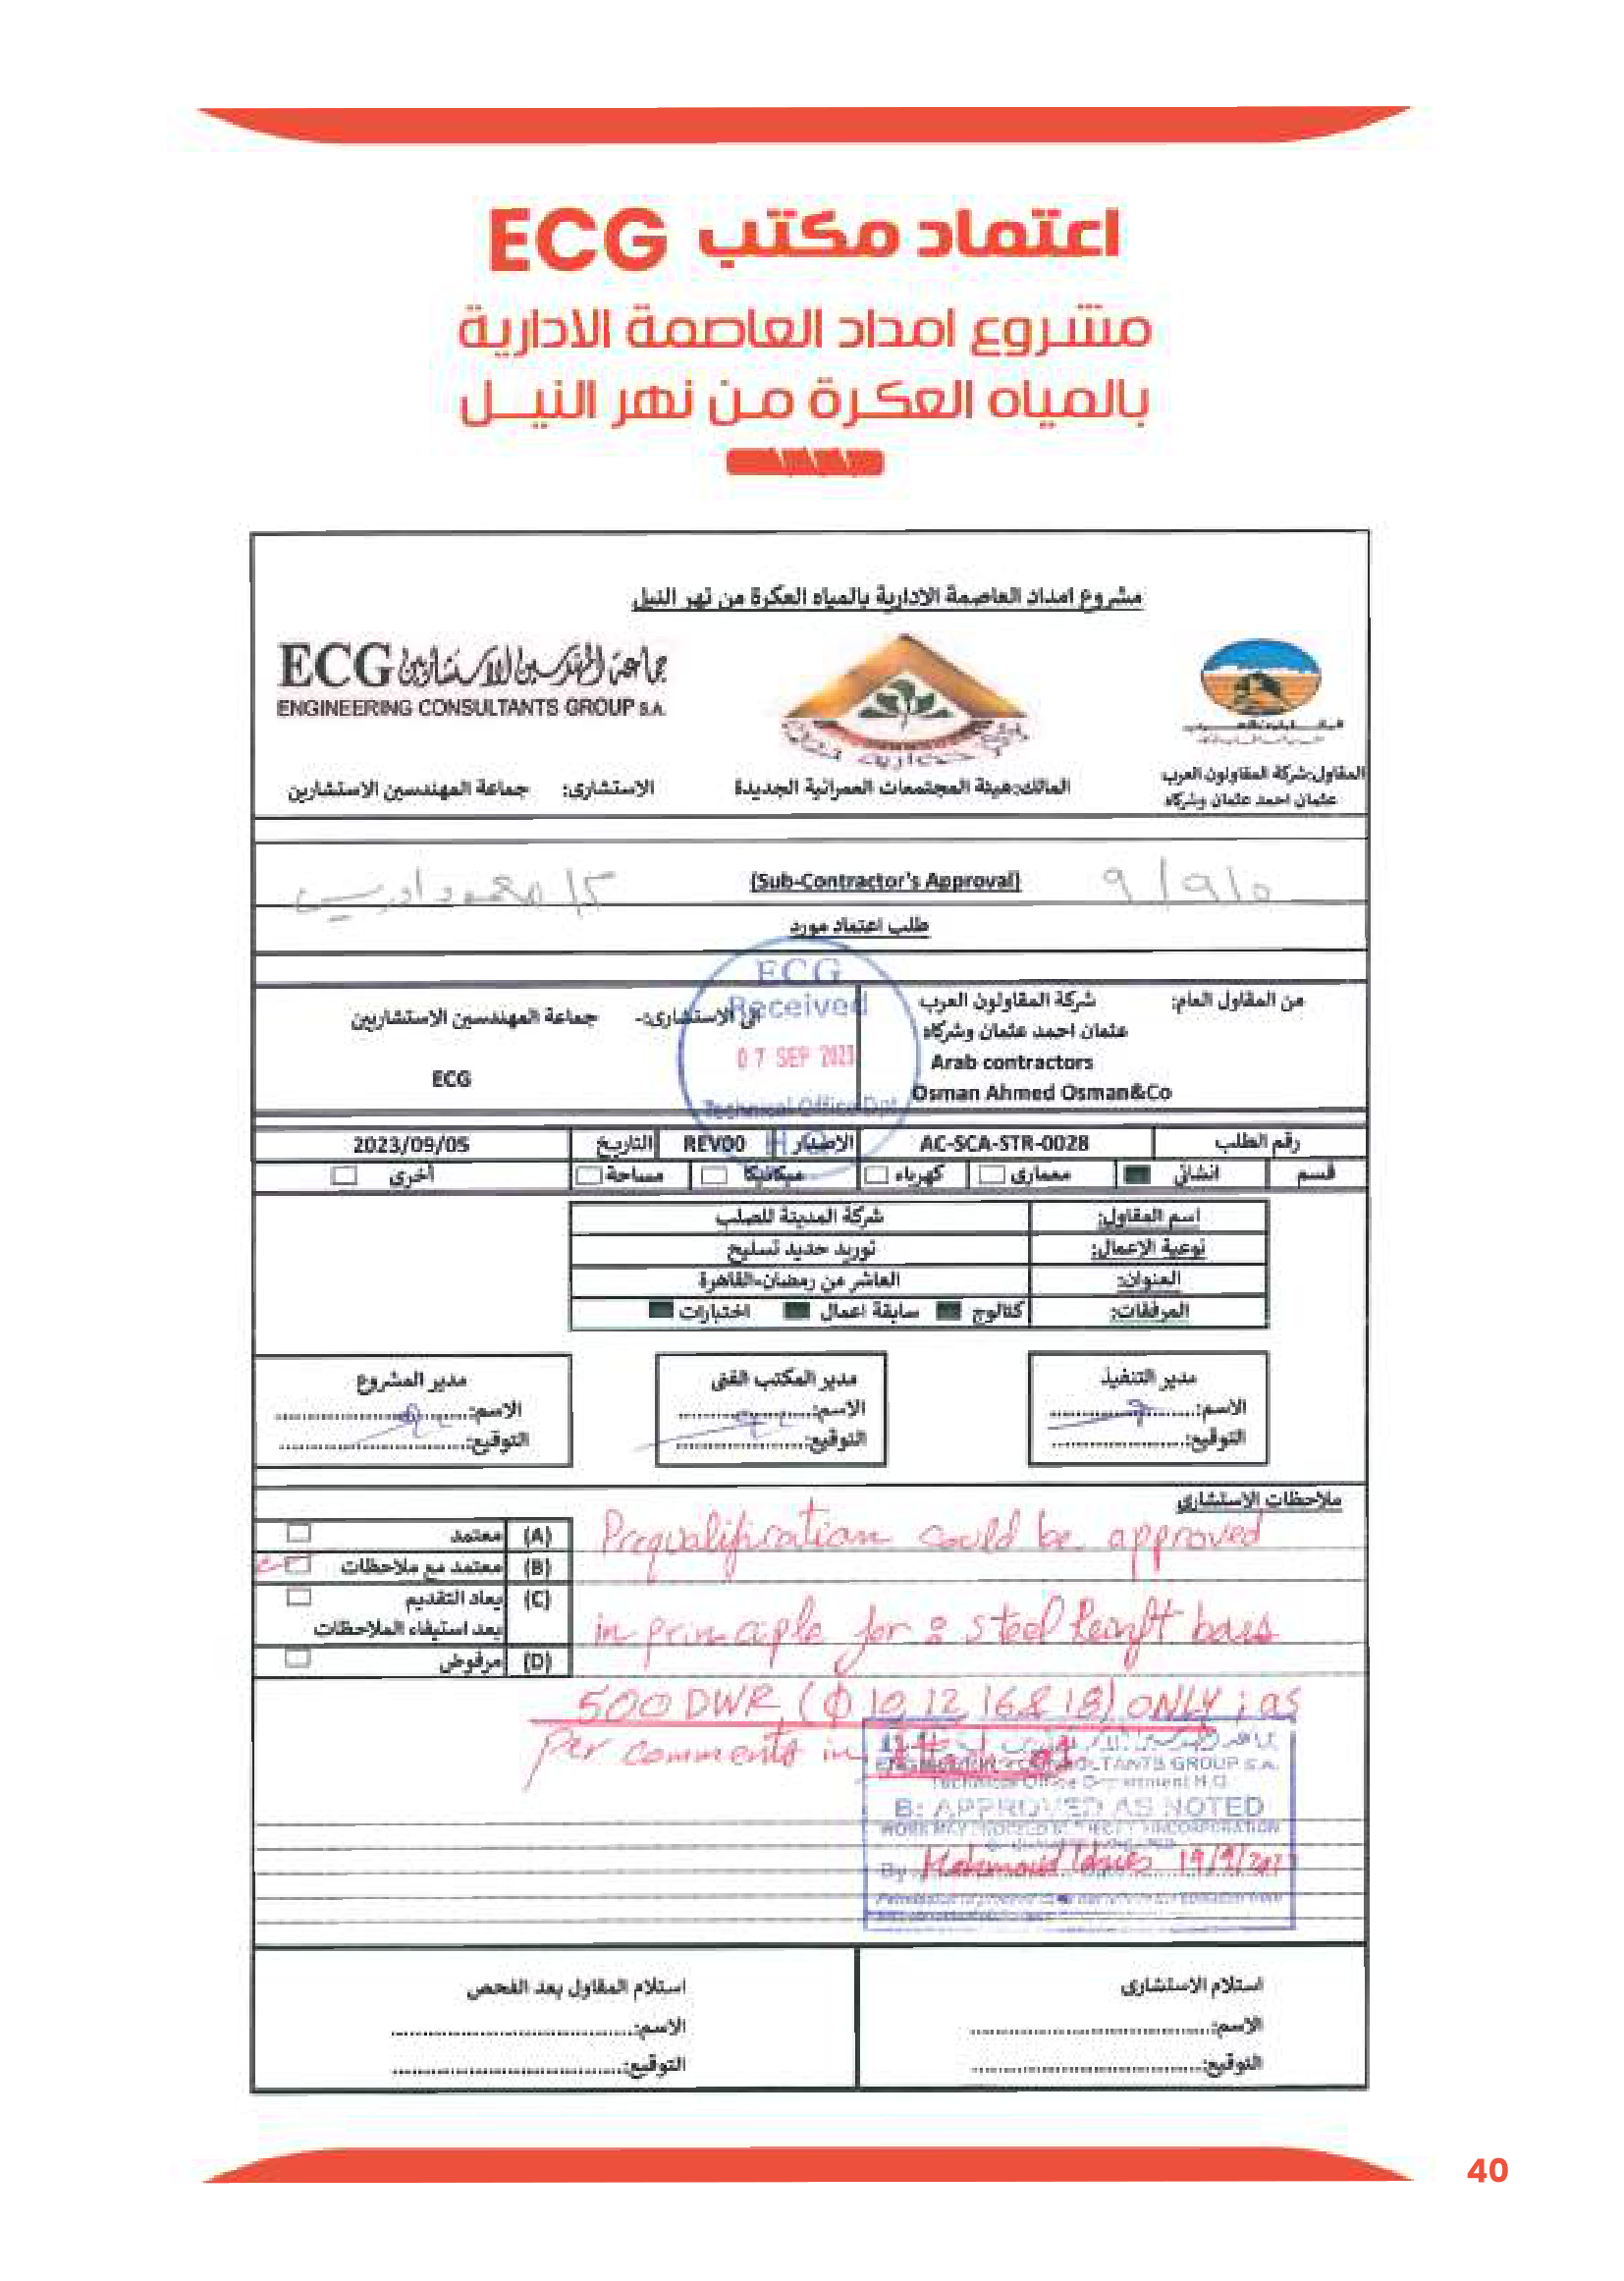 اعتماد مكتب ECG
مشروع امداد العاصمة الادارية
بالمياه العكرة من نهر النيل
مشروع امداد العاصمة الادارية بالمياه العكرة من نهر النيل
ECG جماعة المهندسين الاستشاريين
ENGINEERING CONSULTANTS GROUP S.A.
المقاول:شركة المقاولون العرب
عثمان احمد عثمان وشركاه
المالك:هيئة المجتمعات العمرانية الجديدة
الاستشارى: جماعة المهندسين الاستشارين
٩/٩/٥
(Sub-Contractor's Approval)
م/ محمود ادريس
طلب اعتماد مورد
من المقاول العام: شركة المقاولون العرب
عثمان احمد عثمان وشركاه
Arab contractors
Osman Ahmed Osman&Co
الى الاستشارى:- جماعة المهندسين الاستشاريين
ECG
ECG
Received
07 SEP 2023
Technical Office Dpt.
H.Q
رقم الطلب AC-SCA-STR-0028 الاصدار REV00 التاريخ 2023/09/05
قسم انشائى معمارى كهرباء ميكانيكا مساحة أخرى
اسم المقاول: شركة المدينة للصلب
نوعية الاعمال: توريد حديد تسليح
العنوان: العاشر من رمضان-القاهرة
المرفقات: كتالوج سابقة اعمال اختبارات
مدير التنفيذ
الاسم:
التوقيع:
مدير المكتب الفنى
الاسم:
التوقيع:
مدير المشروع
الاسم:
التوقيع:
ملاحظات الاستشارى
(A) معتمد
(B) معتمد مع ملاحظات
(C) يعاد التقديم
بعد استيفاء الملاحظات
(D) مرفوض
Prequalification could be approved
in principle for : steel Reinft bars
500 DWR (Φ 10, 12, 16 & 18) ONLY ; as
Per comments in
ENGINEERING CONSULTANTS GROUP S.A.
Technical Office Department H.Q.
B: APPROVED AS NOTED
By Mahmoud Idries 19/9/2023
استلام الاستشارى
الاسم:
التوقيع:
استلام المقاول بعد الفحص
الاسم:
التوقيع:
40